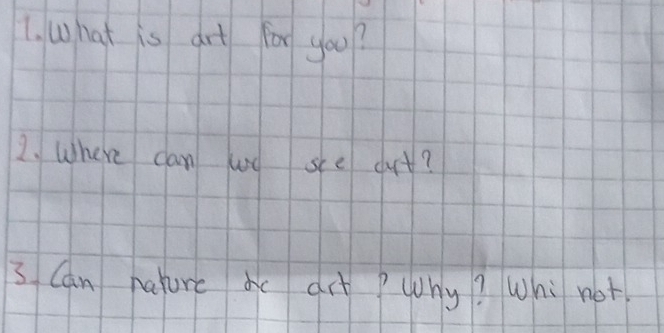 1. What is art for you?
2. Where can we see art?
3. Can nature be art? Why? Whi not.